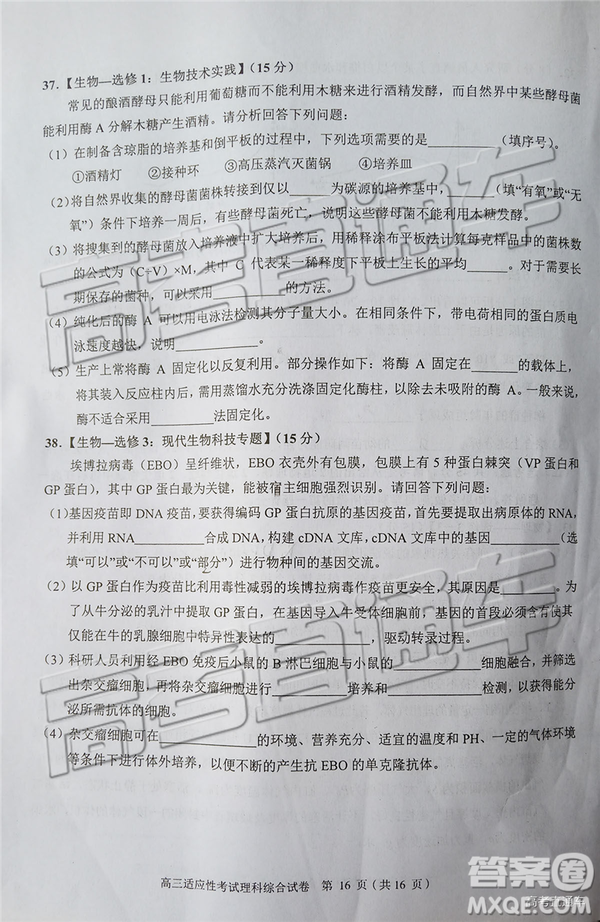 37.【生物—选修1：生物技术实践】(15分)
常见的酿酒酵母只能利用葡萄糖而不能利用木糖来进行酒精发酵，而自然界中某些酵母菌
能利用酶A分解木糖产生酒精。请分析回答下列问题：
(1)在制备含琼脂的培养基和倒平板的过程中，下列需要的是________(填序号)。
①酒精灯 ②接种环 ③高压蒸汽灭菌锅 ④培养皿
(2)将自然界收集的酵母菌菌株转接到仅以________为碳源的培养基中，____(填“有氧”或“无
氧”)条件下培养一段时间后，有些酵母菌死亡，说明这些酵母菌不能利用木糖发酵。
(3)将搜集到的酵母菌放入培养液中扩大培养后，用稀释涂布平板法计算每克样品中的菌株数
的公式为(C÷V)×M，其中 C 代表某一稀释度下平板上生长的平均______。对于需要长
期保存的菌种，可以采用__________的方法。
(4)纯化后的酶 A 可以用电泳法检测其分子量大小。在相同条件下，带电荷相同的蛋白质电
泳速度越快，说明__________。
(5)生产上常将酶 A 固定化以反复利用。部分操作如下：将酶 A 固定在__________的载体上，
将其装入反应柱内后，需用蒸馏水充分洗涤固定化酶柱，以除去未吸附的酶 A。固定化
酶不适合采用__________法固定化。
38.【生物—选修3：现代生物科技专题】(15分)
埃博拉病毒（EBO）呈纤维状，EBO衣壳外有包膜，包膜上有 5 种蛋白棘突（VP 蛋白和
GP 蛋白），其中GP蛋白最为关键，能被宿主细胞强烈识别。请回答下列问题：
(1)基因疫苗即 DNA 疫苗，要获得编码 GP 蛋白抗原的基因疫苗，首先要提取出病原体的 RNA，
并利用RNA________合成DNA，构建 cDNA 文库，cDNA 文库中的基因__________(填
选“可以”或“不可以”或“部分”)进行物种间的基因交流。
(2) 以 GP 蛋白作为疫苗比利用毒性减弱的埃博拉病毒作疫苗更安全，其原因是________。为
了从牛分泌的乳汁中提取 GP 蛋白，在基因导入牛受体细胞前，基因的首端必须含有使其
仅能在牛的乳腺细胞中特异性表达的__________，驱动转录过程。
(3) 科研人员利用经 EBO 免疫后小鼠的 B 淋巴细胞与小鼠的__________细胞融合，并筛选
出杂交瘤细胞，再将杂交瘤细胞进行__________培养和__________检测，以获得能分
泌所需抗体的细胞。
(4) 杂交瘤细胞可在____________的环境、营养充分、适宜的温度和 PH、一定的气体环境
等条件下进行体外培养，以便不断的产生抗 EBO 的单克隆抗体。
高三适应性考试理科综合试卷 第 16 页（共 16 页）
高考直通车
高考直通车
答案圈
MXQE.COM
高考直通车